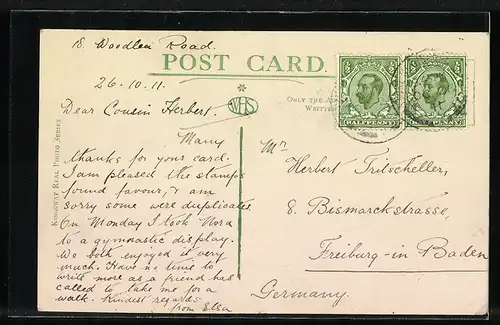 18 Woodlea Road.
POST CARD.
26.10.11.
Dear Cousin Herbert.
Many
thanks for your card.
I am pleased the stamps
found favour, & am
sorry some were duplicates.
On Monday I took Nora
to a gymnastic display.
We both enjoyed it very
much. Have no time to
write more as a friend has
called to take me for a
walk. Kindest regards
from Elsa
KINGSWAY REAL PHOTO SERIES
WHS
ONLY THE
WRITTE
HALFPENNY
HALFPENNY
Mr
Herbert Tritscheller,
8. Bismarckstrasse,
Freiburg-in Baden
Germany.